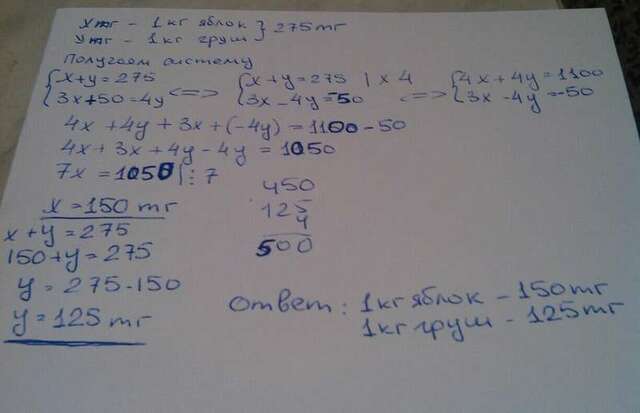 x тг - 1 кг яблок } 275 тг
y тг - 1 кг груш
Получаем систему
{ x+y=275 <=> { x+y=275 | x 4 <=> { 4x+4y=1100
{ 3x+50=4y { 3x-4y=-50 { 3x-4y=-50
4x+4y+3x+(-4y)=1100-50
4x+3x+4y-4y=1050
7x=1050 |:7
x=150 тг
x+y=275
150+y=275
y=275-150
y=125 тг
450
125
4
500
Ответ: 1 кг яблок - 150 тг
1 кг груш - 125 тг